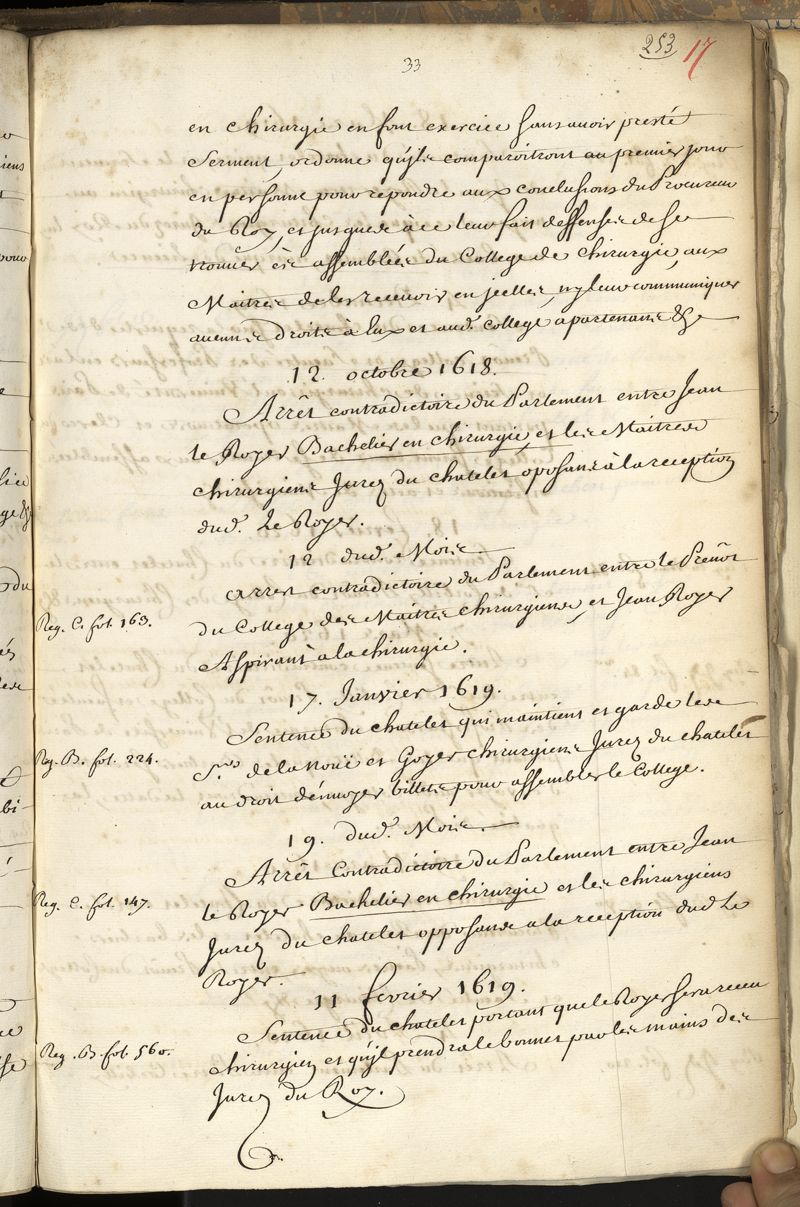 33
253
17
en chirurgie en font exercice sans avoir presté
Serment, ordonne qu'jls comparoitront au premier jour
en personne pour repondre aux conclusions du Procureur
du Roy, et jusques à ce leur fait deffenses de se
trouver ès assemblées du College de chirurgie, aux
Maitres de les recevoir en jcelles, ny leur communiquer
aucuns droits à Eux et aud. college apartenans &c
12. octobre 1618.
Arrêt contradictoire du Parlement entre Jean
le Royer Bachelier en chirurgie, et les Maitres
chirurgiens Jurez du chatelet oposans à la reception
dud. Le Royer.
12 dud. Mois
Arrest contradictoire du Parlement entre le Prevôt
Reg. C. fol. 163.
du College des Maitres chirurgiens, et Jean Royer
Aspirant à la chirurgie.
17. Janvier 1619.
Sentence du chatelet qui maintient et garde les
Reg. B. fol. 224.
Srs de la noüe et Goyer chirurgiens Jurez du chatelet
au droit d'énvoyer billets pour assembler le College.
19. dud. Mois
Arrêt Contradictoire du Parlement entre Jean
Reg. C. fol. 147.
le Royer Bachelier en chirurgie et les chirurgiens
Jurez du chatelet opposans a la reception dud Le
Royer.
11 fevrier 1619.
Sentence du chatelet portant que le Royer sera receu
Reg. B. fol. 560.
chirurgien et qu'jl prendra le bonnet par les mains des
Jurez du Roy.